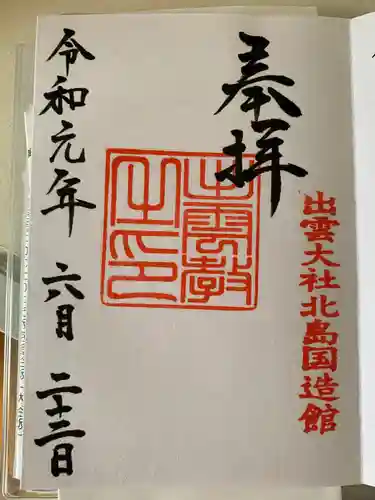 奉拝
出雲大社北島国造館
出雲教
之印
令和元年 六月 二十三日